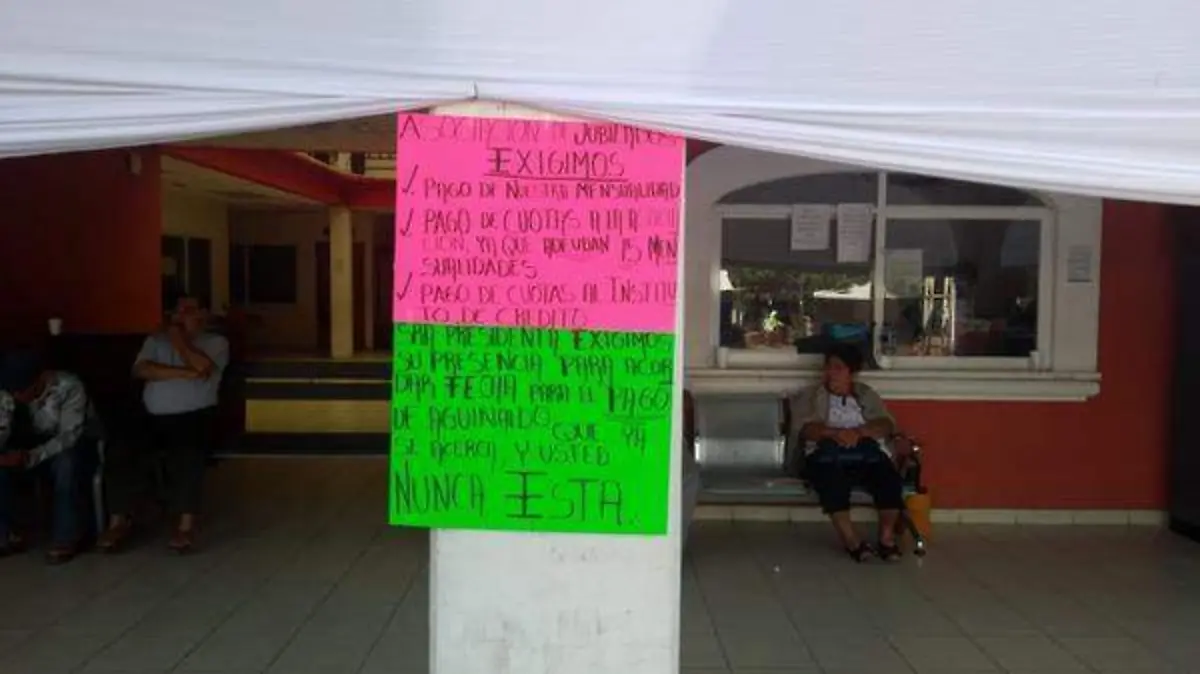 ASOCIACION DE JUBILADOS
EXIGIMOS
✓ PAGO DE NUESTRA MENSUALIDAD
✓ PAGO DE CUOTAS A LA
CION, YA QUE ADEUDAN 15 MEN
SUALIDADES
✓ PAGO DE CUOTAS AL INSTITU
TO DE CREDITO
SRA PRESIDENTA EXIGIMOS
SU PRESENCIA PARA ACOR
DAR FECHA PARA EL PAGO
DE AGUINALDO QUE YA
SE ACERCA, Y USTED
NUNCA ESTA.